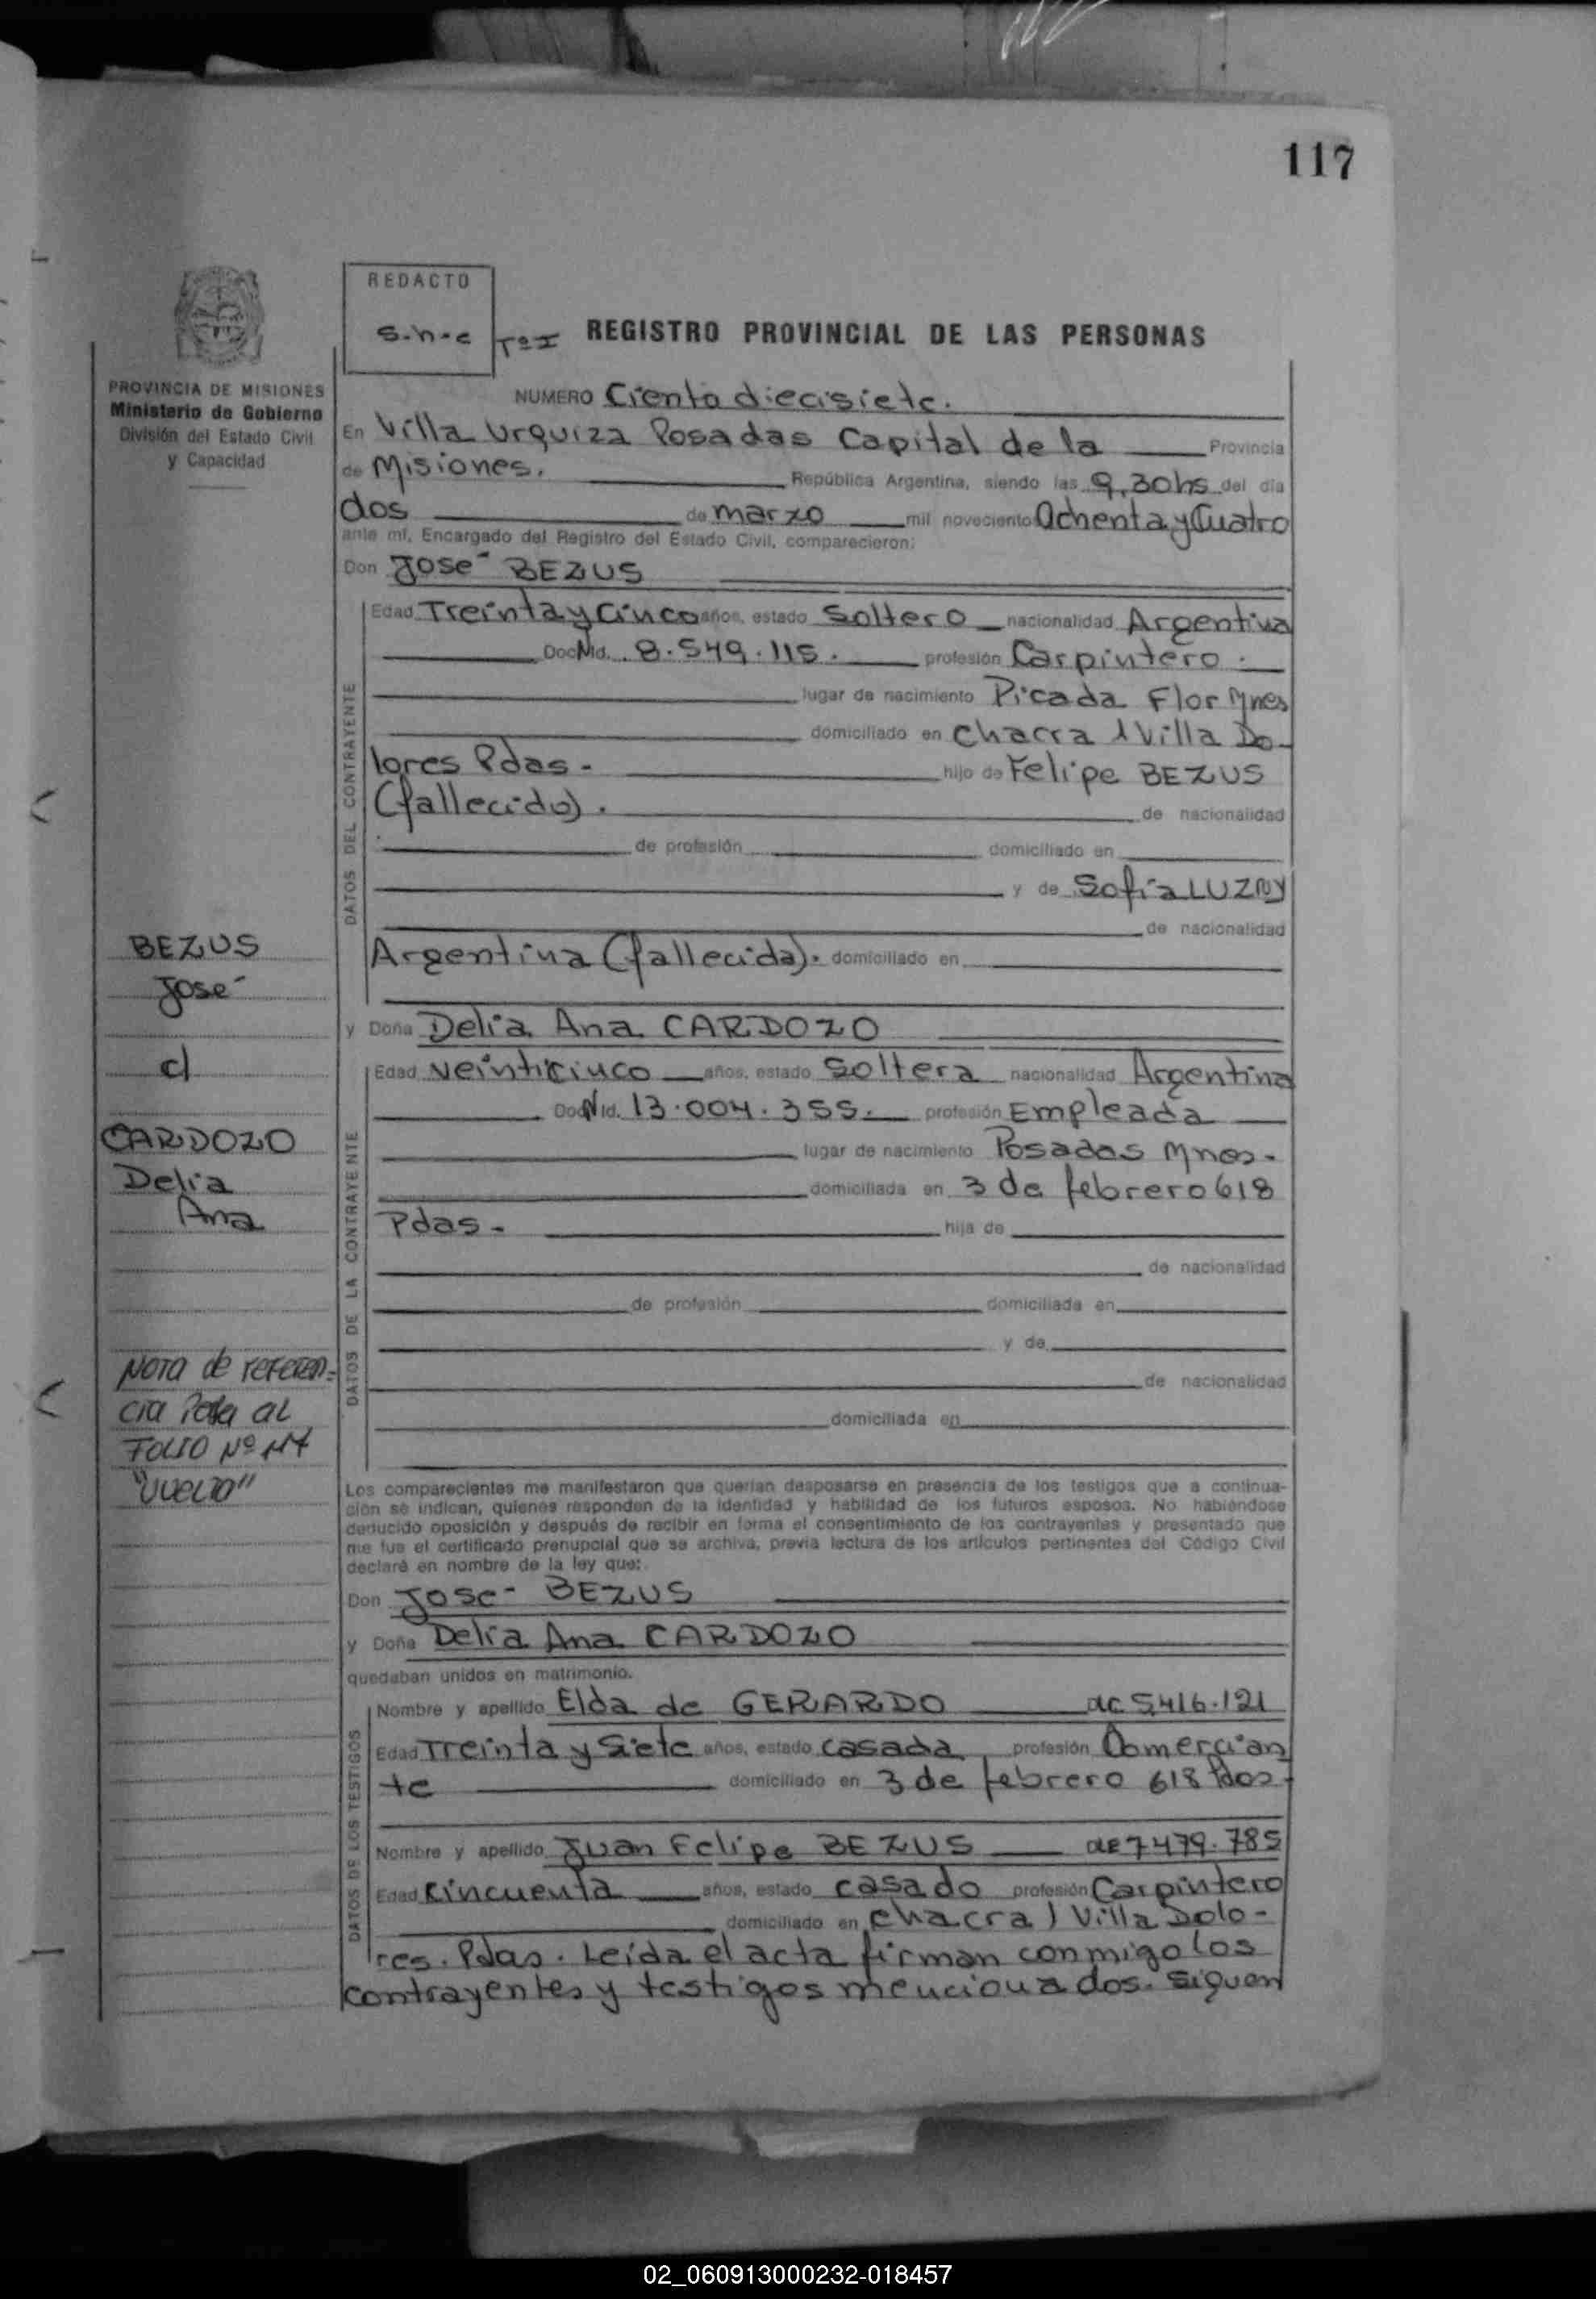 117
REDACTO
s.h.c
Tº I REGISTRO PROVINCIAL DE LAS PERSONAS
PROVINCIA DE MISIONES
Ministerio de Gobierno
División del Estado Civil
y Capacidad
NUMERO Ciento diecisiete.
En Villa Urquiza Posadas Capital de la Provincia
de Misiones. República Argentina, siendo las 9,30hs del día
dos de marzo mil noveciento Ochenta y Cuatro
ante mí, Encargado del Registro del Estado Civil, comparecieron:
Don José BEZUS
DATOS DEL CONTRAYENTE
Edad Treinta y Cinco años, estado Soltero nacionalidad Argentina
Doc N Id. 8.549.115. profesión Carpintero.
lugar de nacimiento Picada Flor Mnes
domiciliado en Chacra 1 Villa Do-
lores Pdas- hijo de Felipe BEZUS
(fallecido). de nacionalidad
de profesión domiciliado en
y de Sofía LUZNY
de nacionalidad
Argentina (fallecida). domiciliado en
BEZUS
José
c/
CARDOZO
Delia
Ana
y Doña Delia Ana CARDOZO
DATOS DE LA CONTRAYENTE
Edad veinticinco años, estado Soltera nacionalidad Argentina
Doc N Id. 13.004.355. profesión Empleada
lugar de nacimiento Posadas Mnes-
domiciliada en 3 de febrero 618
Pdas- hija de
de nacionalidad
de profesión domiciliada en
y de
de nacionalidad
domiciliada en
Nota de referen=
cia Pasa al
FOLIO Nº 117
"VUELTO"
Los comparecientes me manifestaron que querían desposarse en presencia de los testigos que a continua-
ción se indican, quienes responden de la identidad y habilidad de los futuros esposos. No habiéndose
deducido oposición y después de recibir en forma el consentimiento de los contrayentes y presentado que
me fue el certificado prenupcial que se archiva, previa lectura de los artículos pertinentes del Código Civil
declaré en nombre de la ley que:
Don José BEZUS
y Doña Delia Ana CARDOZO
quedaban unidos en matrimonio.
DATOS DE LOS TESTIGOS
Nombre y apellido Elda de GERARDO dc 5.416.121
Edad Treinta y Siete años, estado casada profesión Comercian
te domiciliado en 3 de febrero 618 Pdas-
Nombre y apellido Juan Felipe BEZUS 7.479.785
Edad Cincuenta años, estado casado profesión Carpintero
domiciliado en Chacra 1 Villa Dolo-
res. Pdas. Leída el acta firman conmigo los
contrayentes y testigos mencionados. Siguen
02_060913000232-018457